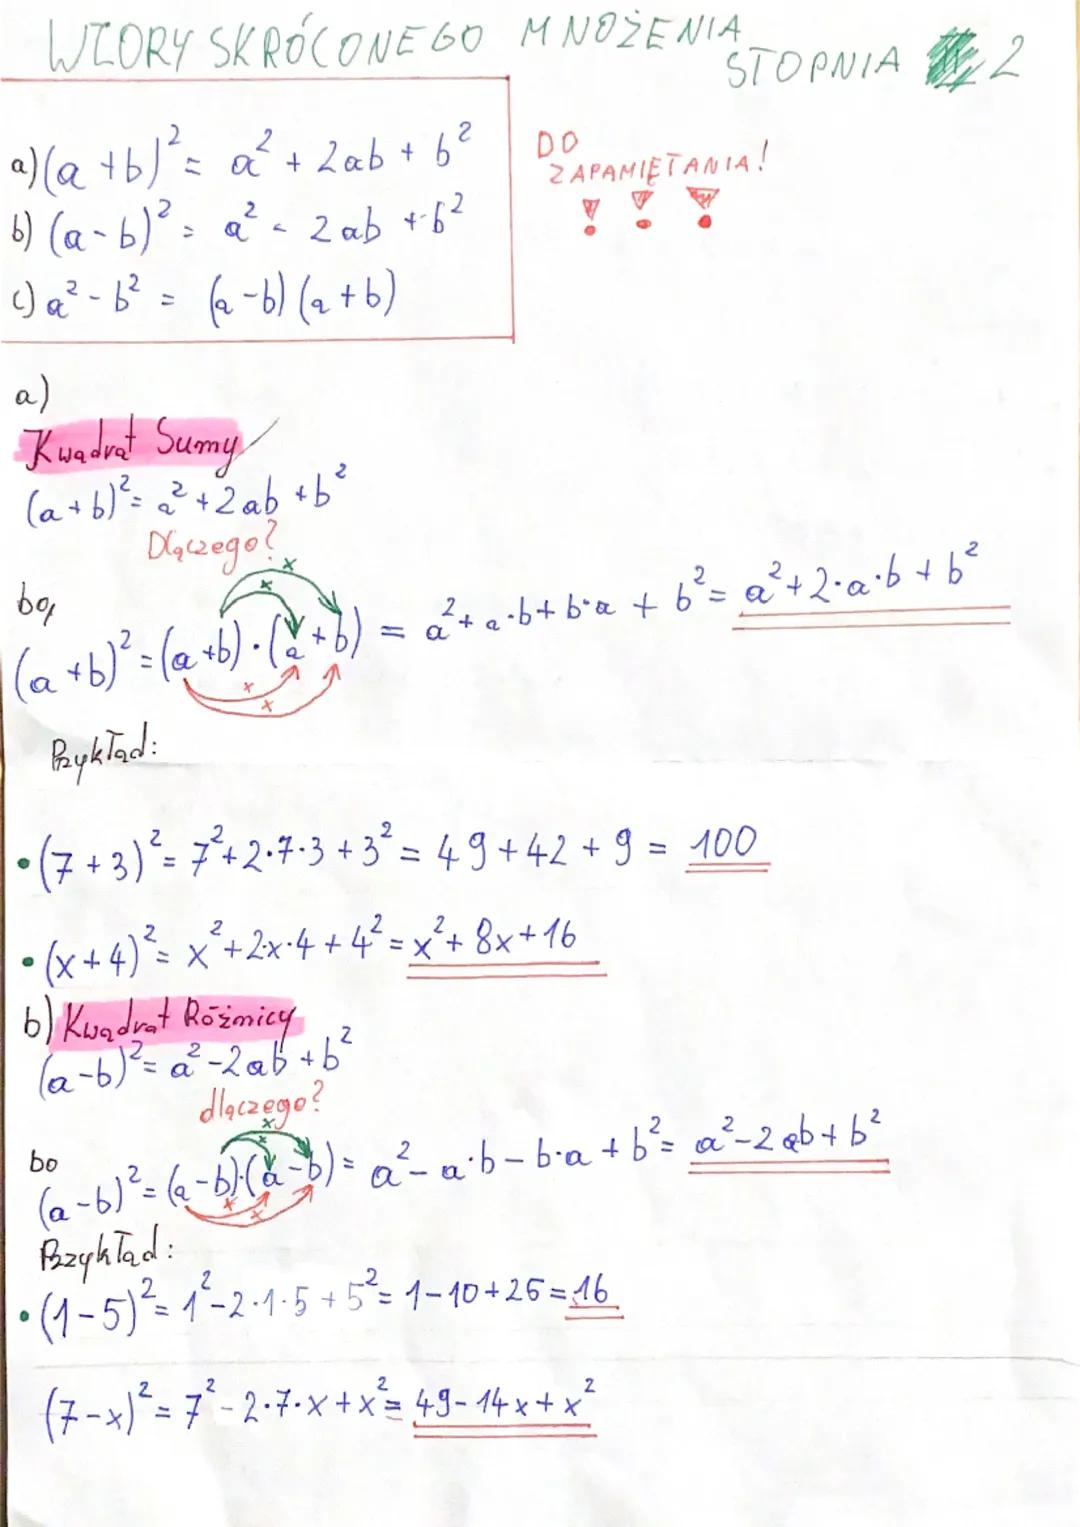 WZORY SKRÓCONEGO MNOŻENIA
STOPNIA 2
a) (a+b)² = a² + 2ab + b²
b) (a-b)² = a² - 2ab + b²
c) a² - b² = (a-b)(a+b)
DO
ZAPAMIĘTANIA!
!!!
a)
Kwadrat Sumy
(a+b)² = a² + 2ab + b²
Dlaczego?
bo,
(a+b)² = (a+b)·(a+b) = a² + a·b + b·a + b² = a² + 2·a·b + b²
Przykład:
• (7+3)² = 7² + 2·7·3 + 3² = 49 + 42 + 9 = 100
• (x+4)² = x² + 2x·4 + 4² = x² + 8x + 16
b) Kwadrat Różnicy
(a-b)² = a² - 2ab + b²
dlaczego?
bo
(a-b)² = (a-b)·(a-b) = a² - a·b - b·a + b² = a² - 2ab + b²
Przykład:
• (1-5)² = 1² - 2·1·5 + 5² = 1 - 10 + 25 = 16
(7-x)² = 7² - 2·7·x + x² = 49 - 14x + x²